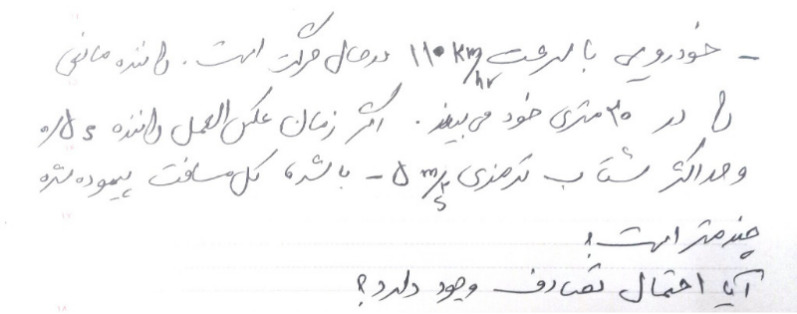 - خودرویی با سرعت ۱۱۰ km/hr در حال حرکت است. راننده مانعی
را در ۳۰ متری خود می‌بیند. اگر زمان عکس‌العمل راننده ۰/۵ s
و حداکثر شتاب ترمزی -۵ m/s² باشد، کل مسافت پیموده شده
چند متر است؟
آیا احتمال تصادف وجود دارد؟